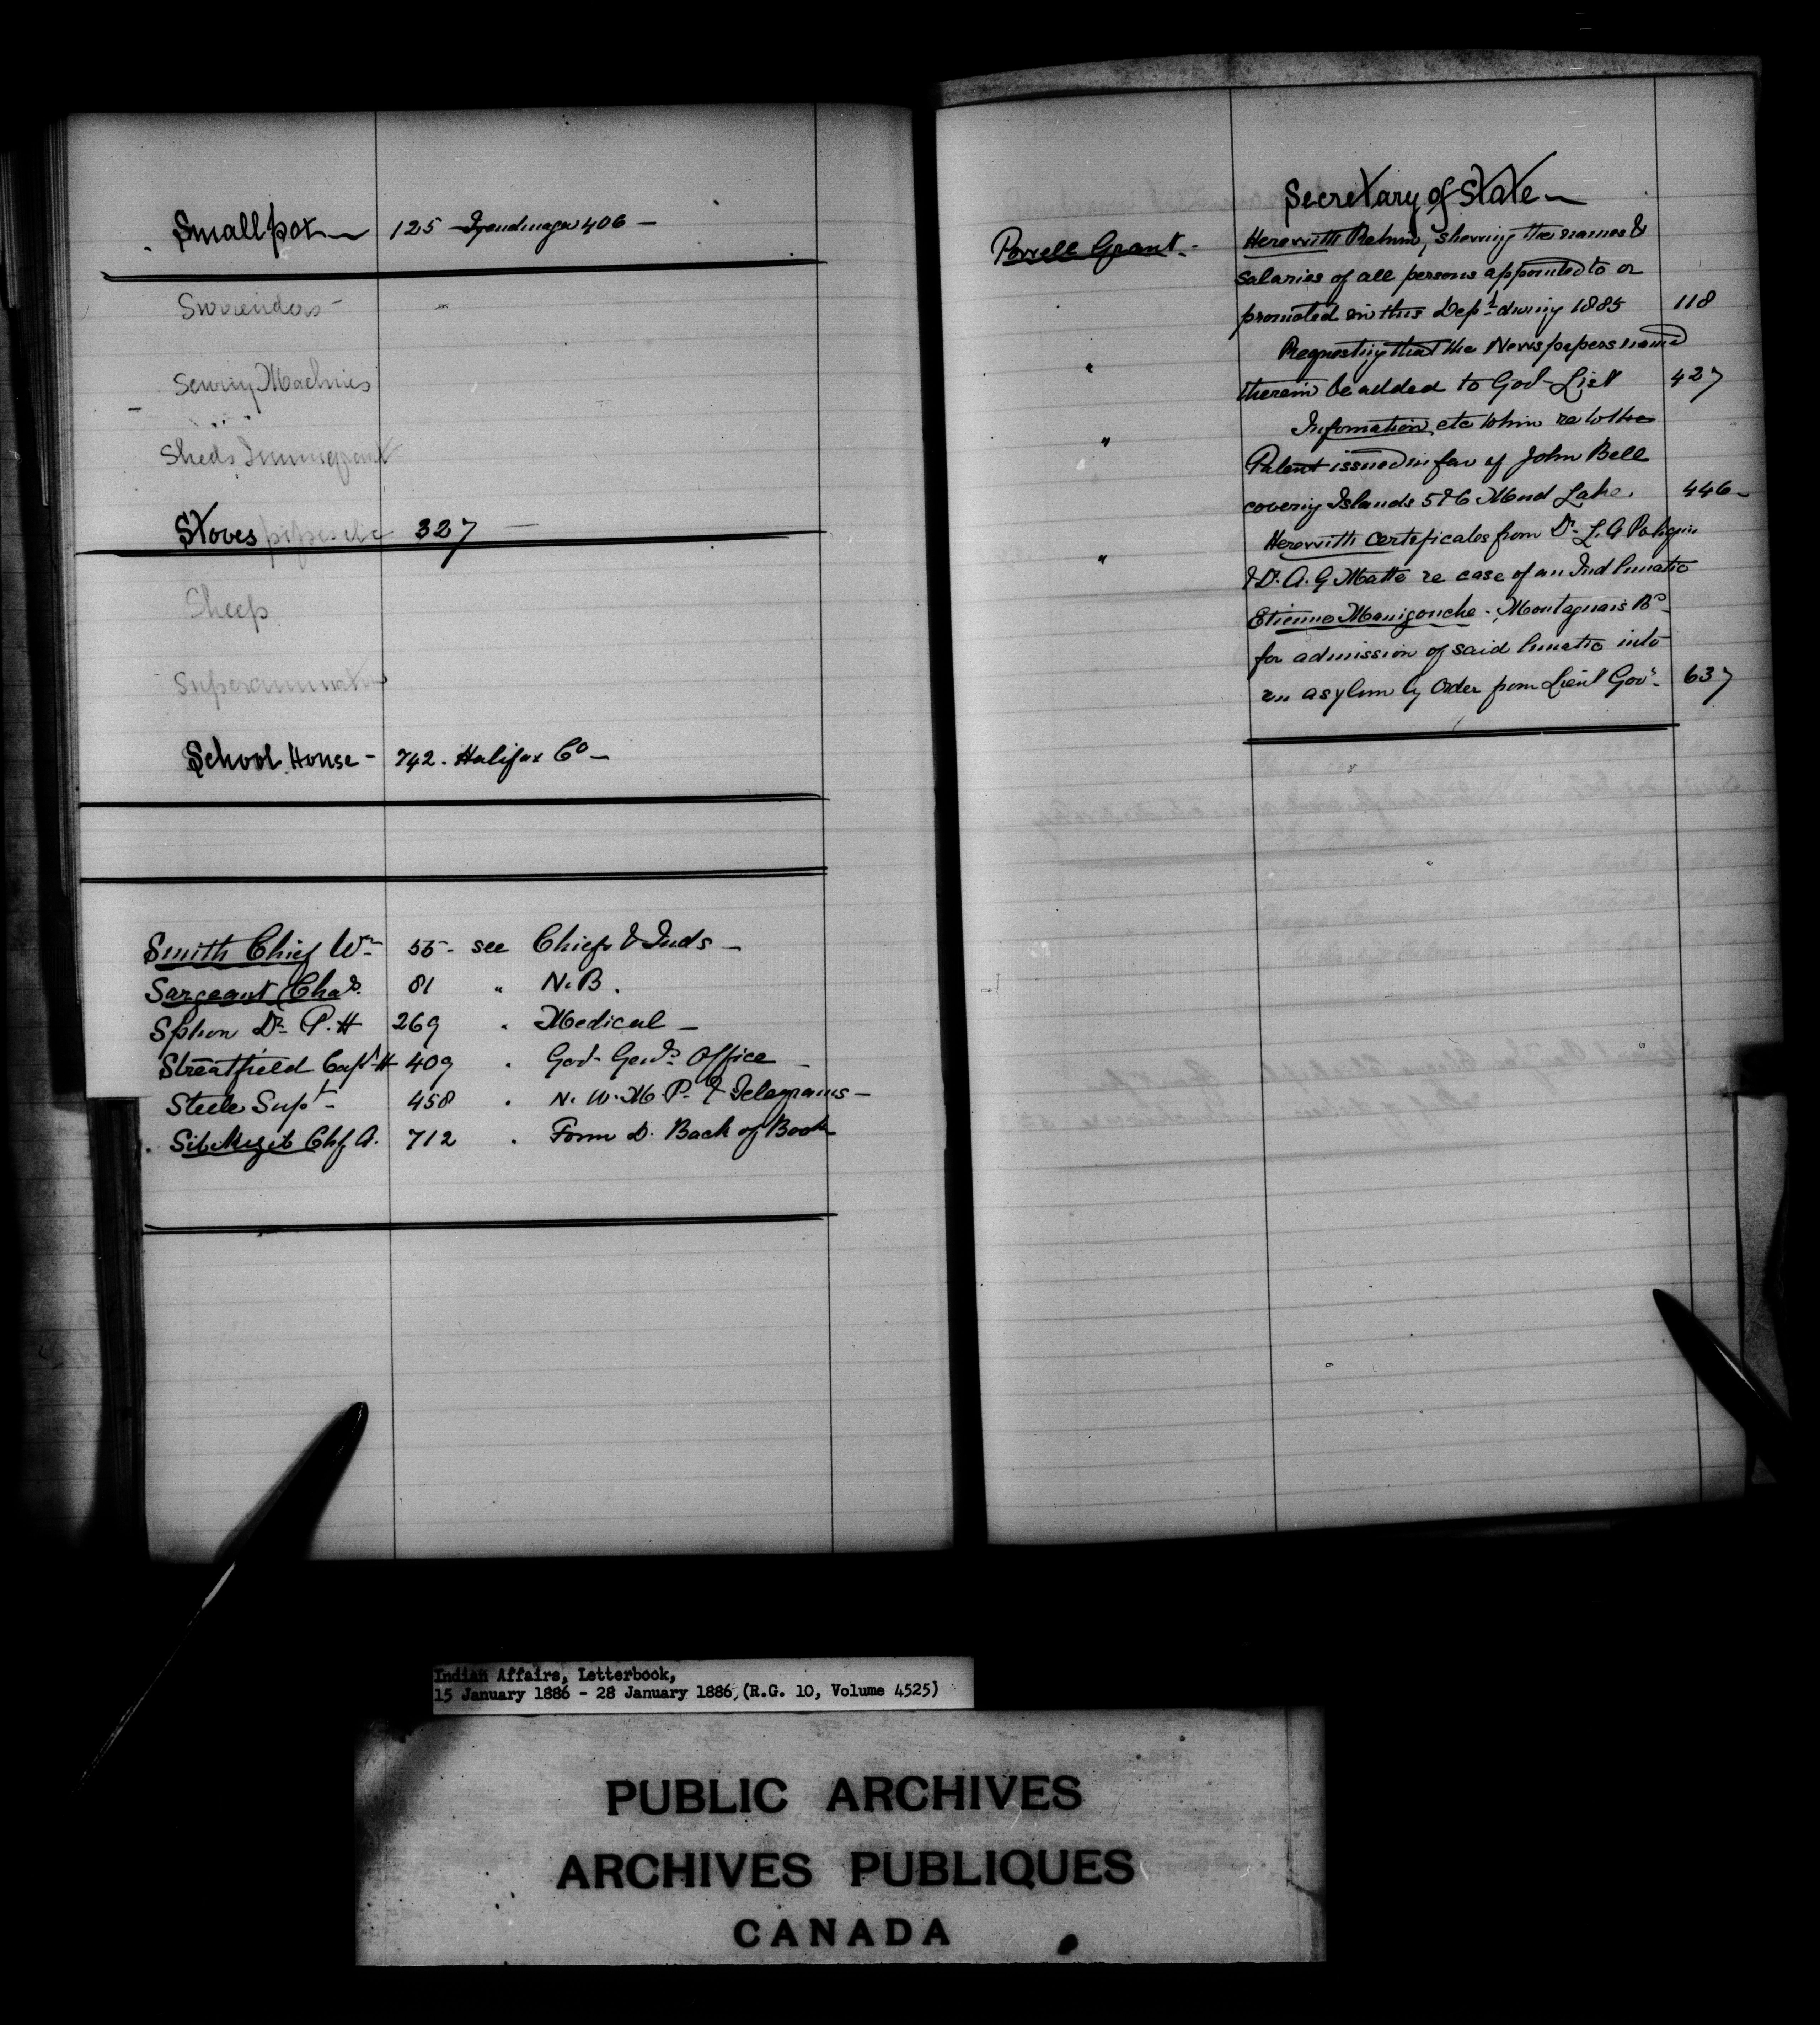 Smallpox — 125 Tyendinaga 406 —
Surrenders -
Sewing Machines
Sheds Immigrant
Stoves pipes etc 327 —
Sheep
Superannuation
School House - 742. Halifax Co —
Smith Chief Wm 55 - see Chiefs & Inds —
Sargeant Chas. 81 " N.B.
Spohn Dr. P.H 269 " Medical —
Streatfield Capt H 409 " Gov. Genls Office —
Steele Supt - 458 " N.W.M.P. & Telegrams —
Chf A. 712 " Form D. Back of Book
Secretary of State —
Powell Grant - Herewith Return, showing the names &
salaries of all persons appointed to or
promoted in this Dept. during 1885 118
" Requesting that the Newspapers named
therein be added to Gov List 427
" Information etc to him re to the
Patent issued in fav of John Bell
covering Islands 5 & 6 Mud Lake. 446 -
" Herewith certificates from Dr. L. A
& Dr. A. G Matte re case of an Ind lunatic
Etienne Manigouche - Montagnais Bd
for admission of said lunatic into
an asylum by Order from Lieut Govr. 637
Indian Affairs, Letterbook,
15 January 1886 - 28 January 1886, (R.G. 10, Volume 4525)
PUBLIC ARCHIVES
ARCHIVES PUBLIQUES
CANADA